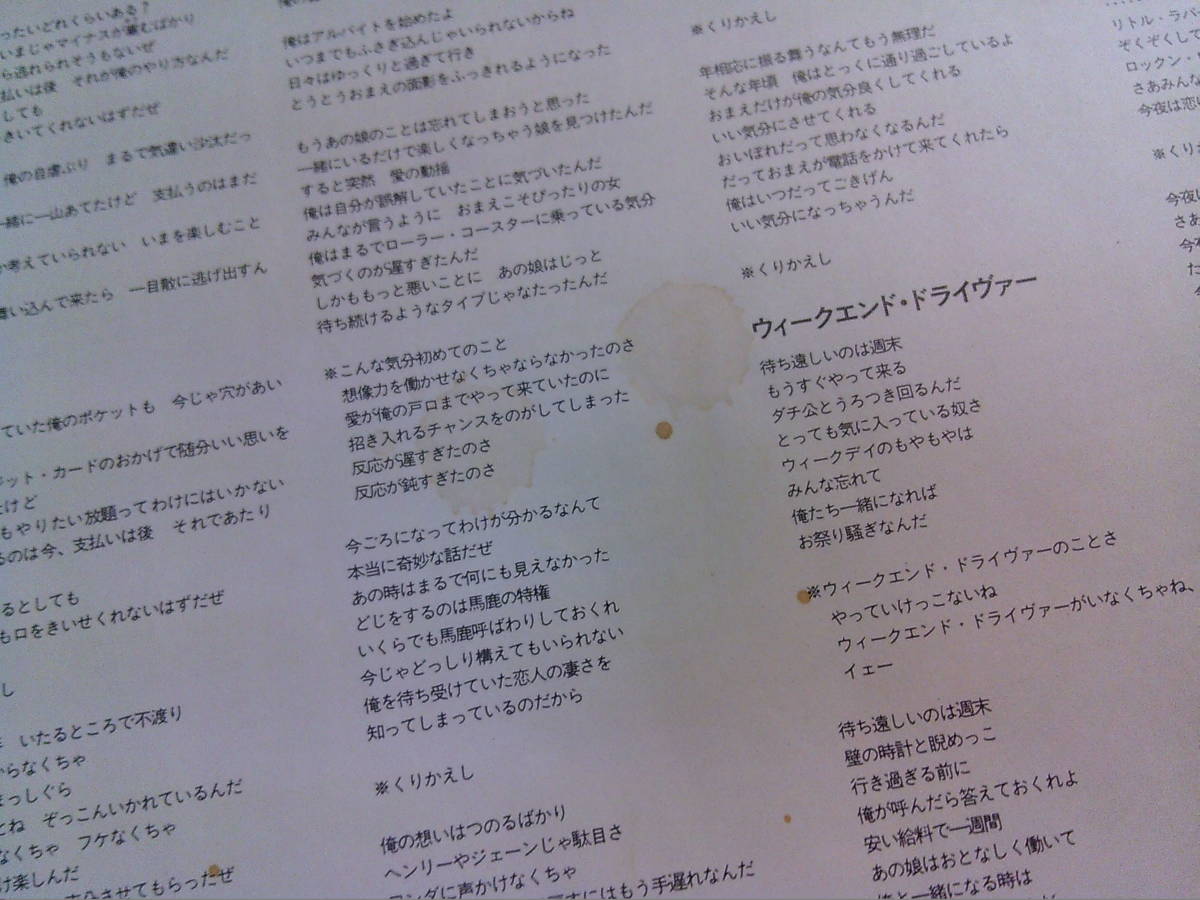 ったいどれくらいある？
いまじゃマイナスが嵩むばかり
ら逃れられそうもないぜ
払いは後　それが俺のやり方なんだ
しても
きいてくれないはずだぜ
俺の自虐ぶり　まるで気違い沙汰だっ
一緒に一山あてたけど　支払うのはまだ
か考えていられない　いまを楽しむこと
い込んで来たら　一目散に逃げ出すん
ていた俺のポケットも　今じゃ穴があい
ジット・カードのおかげで随分いい思いを
たけど
もやりたい放題ってわけにはいかない
るのは今、支払いは後　それであたり
るとしても
も口をきいせくれないはずだぜ
し
いたるところで不渡り
からなくちゃ
まっしぐら
とね　ぞっこんいかれているんだ
なくちゃ　フケなくちゃ
け楽しんだ
させてもらったぜ
俺はアルバイトを始めたよ
いつまでもふさぎ込んじゃいられないからね
日々はゆっくりと過ぎて行き
とうとうおまえの面影をふっきれるようになった
もうあの娘のことは忘れてしまおうと思った
一緒にいるだけで楽しくなっちゃう娘を見つけたんだ
すると突然　愛の動揺
俺は自分が誤解していたことに気づいたんだ
みんなが言うように　おまえこそぴったりの女
俺はまるでローラー・コースターに乗っている気分
気づくのが遅すぎたんだ
しかももっと悪いことに　あの娘はじっと
待ち続けるようなタイプじゃなたったんだ
※こんな気分初めてのこと
想像力を働かせなくちゃならなかったのさ
愛が俺の戸口までやって来ていたのに
招き入れるチャンスをのがしてしまった
反応が遅すぎたのさ
反応が鈍すぎたのさ
今ごろになってわけが分かるなんて
本当に奇妙な話だぜ
あの時はまるで何にも見えなかった
どじをするのは馬鹿の特権
いくらでも馬鹿呼ばわりしておくれ
今じゃどっしり構えてもいられない
俺を待ち受けていた恋人の凄さを
知ってしまっているのだから
※くりかえし
俺の想いはつのるばかり
ヘンリーやジェーンじゃ駄目さ
ンダに声かけなくちゃ
にはもう手遅れなんだ
※くりかえし
年相応に振る舞うなんてもう無理だ
そんな年頃　俺はとっくに通り過ごしているよ
おまえだけが俺の気分良くしてくれる
いい気分にさせてくれる
おいぼれだって思わなくなるんだ
だっておまえが電話をかけて来てくれたら
俺はいつだってごきげん
いい気分になっちゃうんだ
※くりかえし
ウィークエンド・ドライヴァー
待ち遠しいのは週末
もうすぐやって来る
ダチ公とうろつき回るんだ
とっても気に入っている奴さ
ウィークデイのもやもやは
みんな忘れて
俺たち一緒になれば
お祭り騒ぎなんだ
※ウィークエンド・ドライヴァーのことさ
やっていけっこないね
ウィークエンド・ドライヴァーがいなくちゃね、
イェー
待ち遠しいのは週末
壁の時計と睨めっこ
行き過ぎる前に
俺が呼んだら答えておくれよ
安い給料で一週間
あの娘はおとなしく働いて
俺と一緒になる時は
リトル・ラバ
ぞくぞくして
ロックン・
さあみんな
今夜は恋
※くりか
今夜に
さあ
今
た